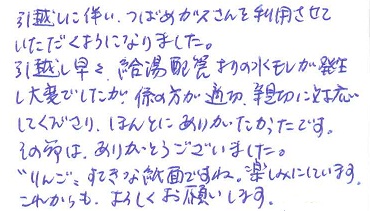 引越しに伴い、つばめガスさんを利用させて
いただくようになりました。
引越し早々、給湯配管よりの水モレが発生
し大変でしたが、係の方が適切、親切に対応
してくださり、ほんとにありがたかったです。
その節は、ありがとうございました。
“りんご„すてきな紙面ですね。楽しみにしています。
これからも、よろしくお願いします。